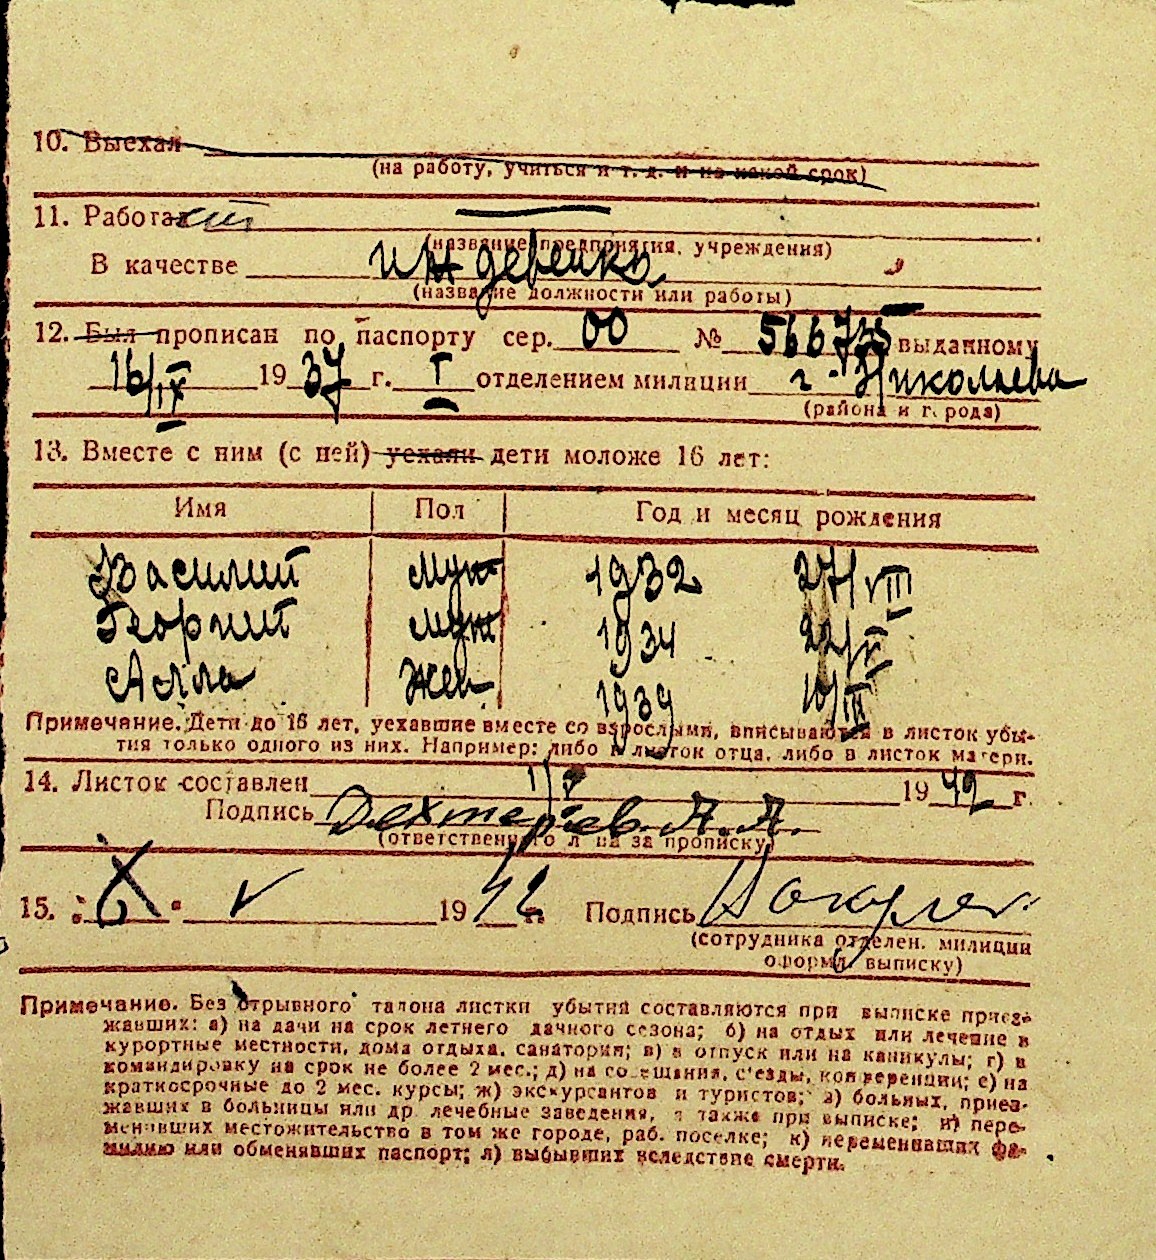 10. Выехал
(на работу, учиться и т. д. и на какой срок)
11. Работает
(название предприятия, учреждения)
В качестве иждевенка
(название должности или работы)
12. Был прописан по паспорту сер. 00 № 566735 выданному
16/IX 1937 г. I отделением милиции г. Николаева
(района и города)
13. Вместе с ним (с ней) уехали дети моложе 16 лет:
Имя Пол Год и месяц рождения
Василий муж 1932 27/VIII
Георгий муж 1934 22/
Алла жен 1939 10/III
Примечание. Дети до 16 лет, уехавшие вместе со взрослыми, вписываются в листок убы-
тия только одного из них. Например: либо в листок отца, либо в листок матери.
14. Листок составлен 1942 г.
Подпись Дехтерев. А. А.
(ответственного лица за прописку)
15. V 1942 г. Подпись
(сотрудника отделен. милиции
оформл. выписку)
Примечание. Без отрывного талона листки убытия составляются при выписке приез-
жавших: а) на дачи на срок летнего дачного сезона; б) на отдых или лечение в
курортные местности, дома отдыха, санатория; в) в отпуск или на каникулы; г) в
командировку на срок не более 2 мес.; д) на совещания, с'езды, конференции; е) на
краткосрочные до 2 мес. курсы; ж) экскурсантов и туристов; з) больных, приез-
жавших в больницы или др. лечебные заведения, а также при выписке; и) пере-
менивших местожительство в том же городе, раб. поселке; к) переменивших фа-
милию или обменявших паспорт; л) выбывших вследствие смерти.